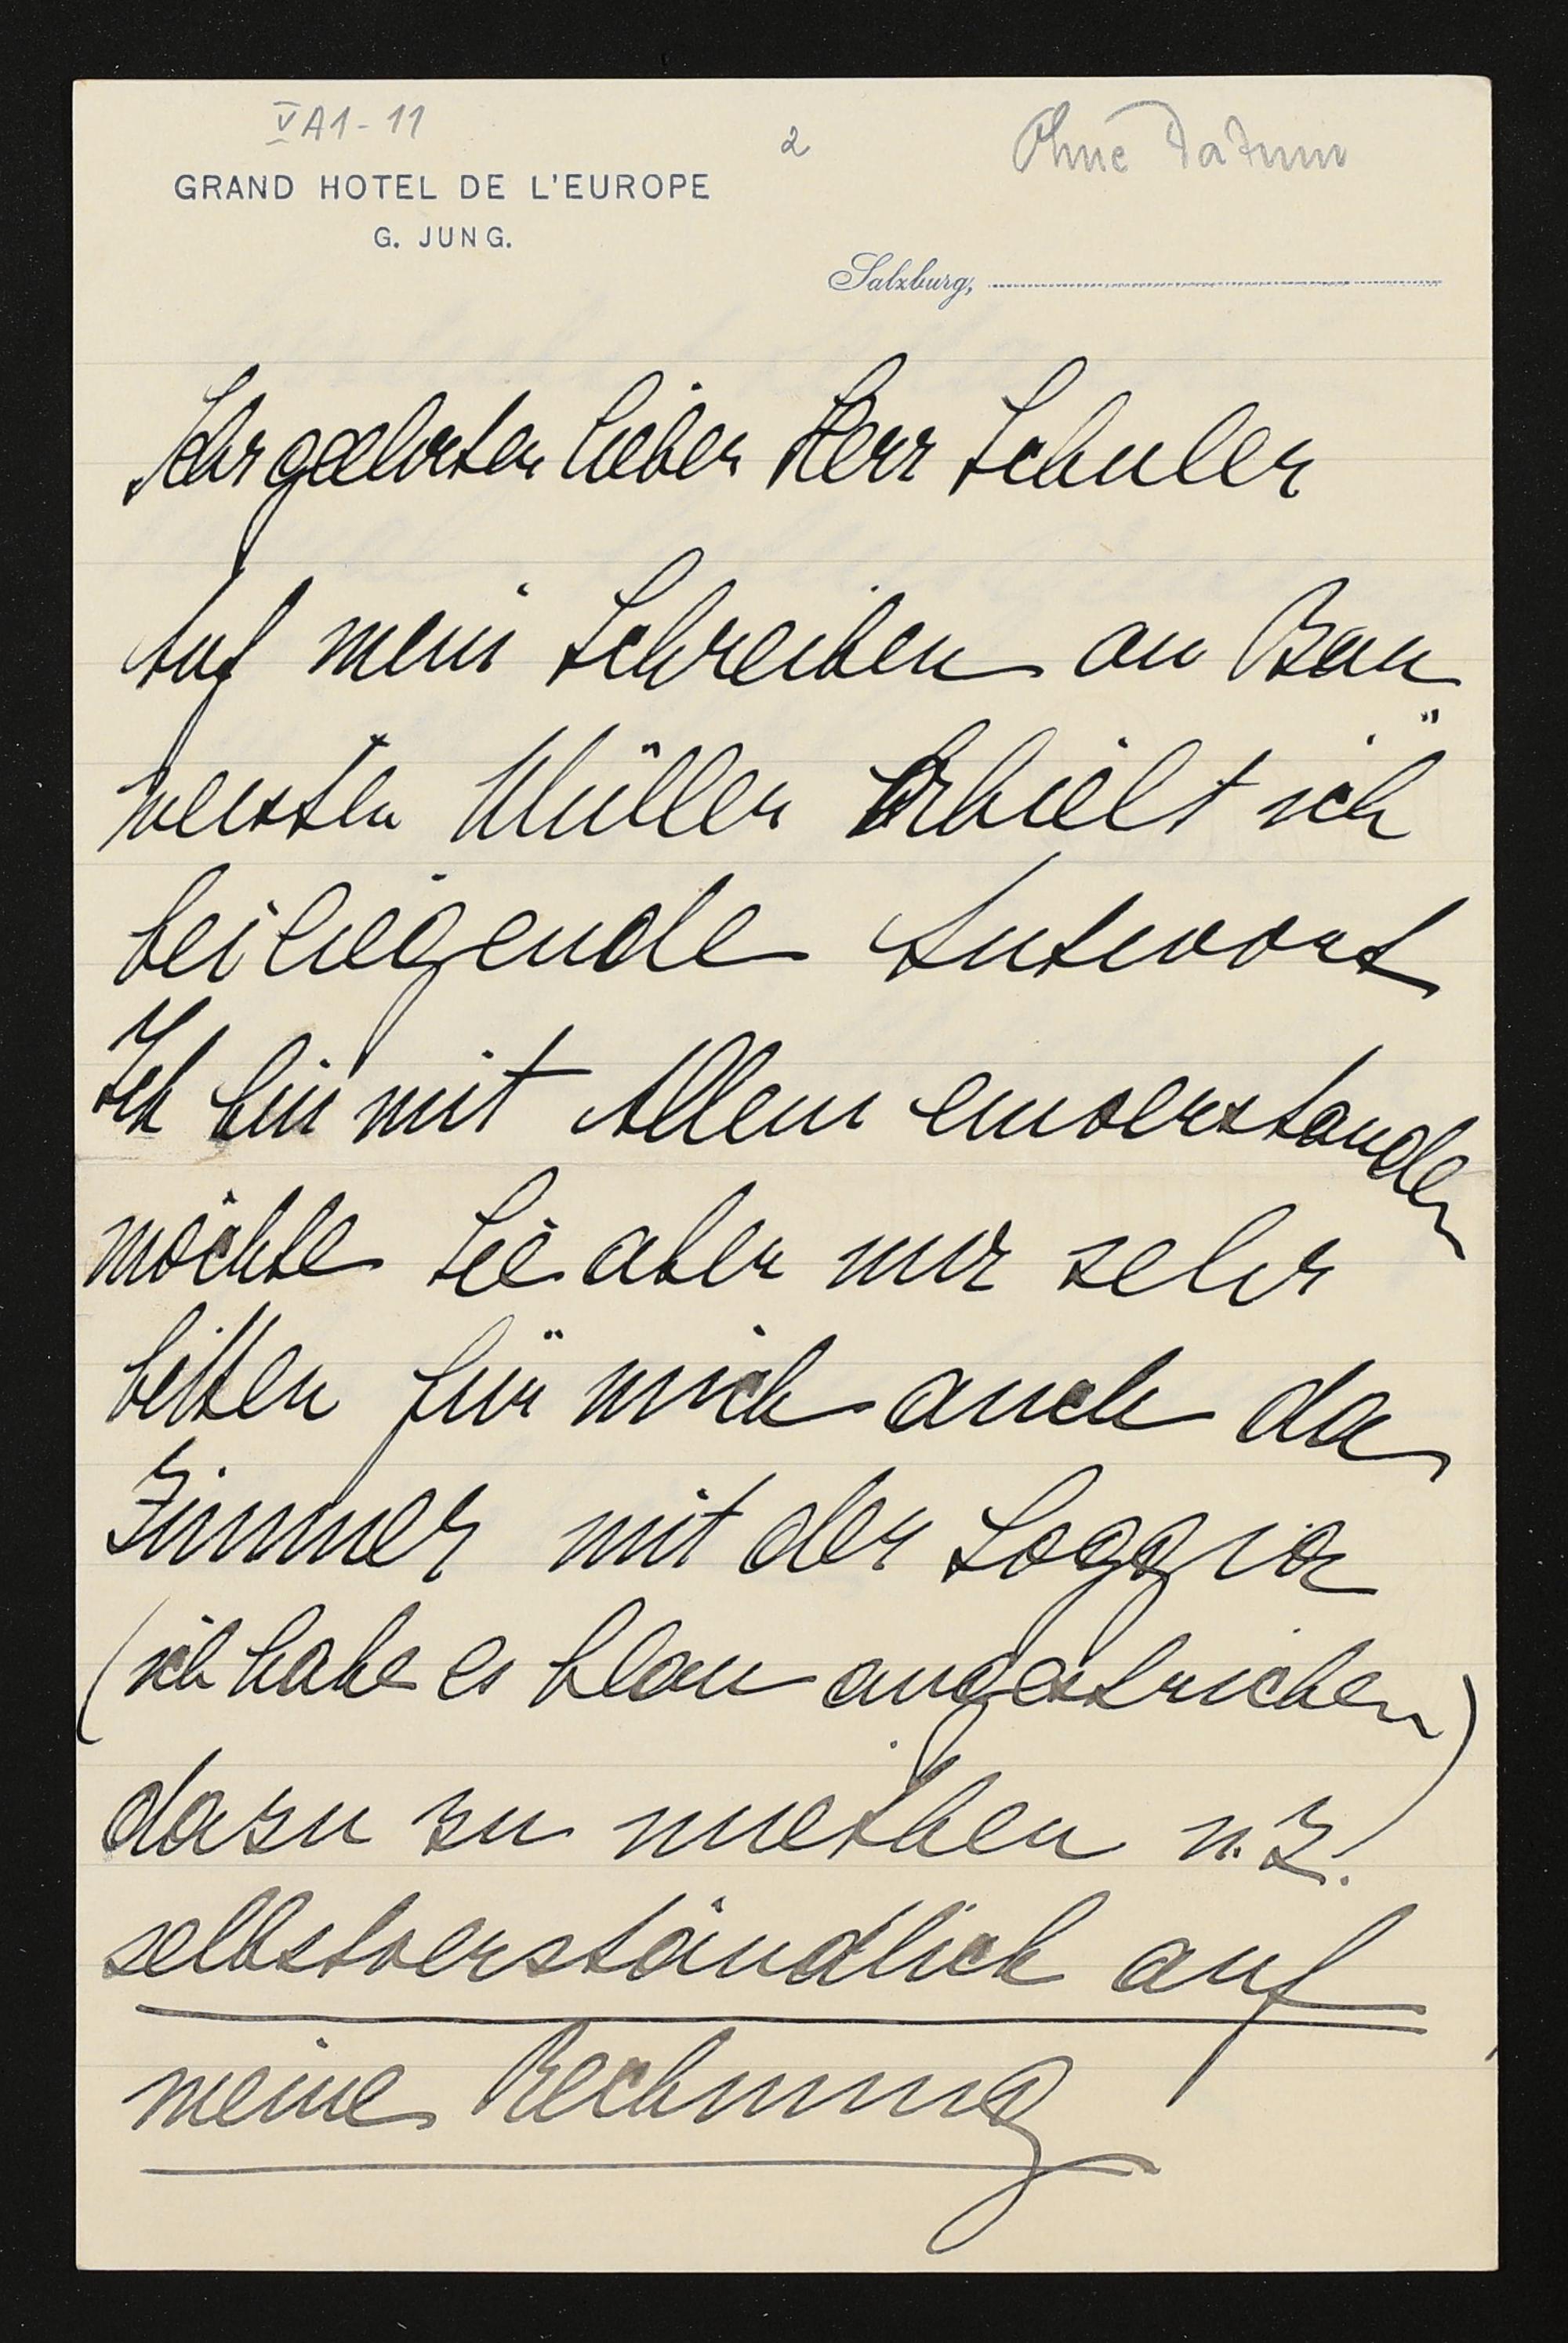 V A1-11
2
Ohne Datum
GRAND HOTEL DE L'EUROPE
G. JUNG.
Salzburg,
Sehr geehrter lieber Herr Schuler
Auf mein Schreiben an Bau"
meister Müller erhielt ich
beiliegende Antwort
Ich bin mit Allem einverstanden
möchte Sie aber nur sehr
bitten für mich auch da
Zimmer mit der Loggia
(ich habe es blau angestrichen)
dazu zu miethen u. Z.
selbstverständlich auf
meine Rechnung